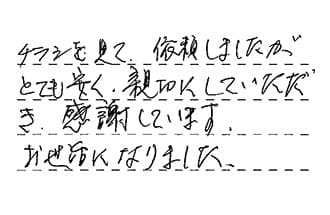 チラシを見て、依頼しましたが
とても安く、親切にしていただ
き、感謝しています。
お世話になりました。